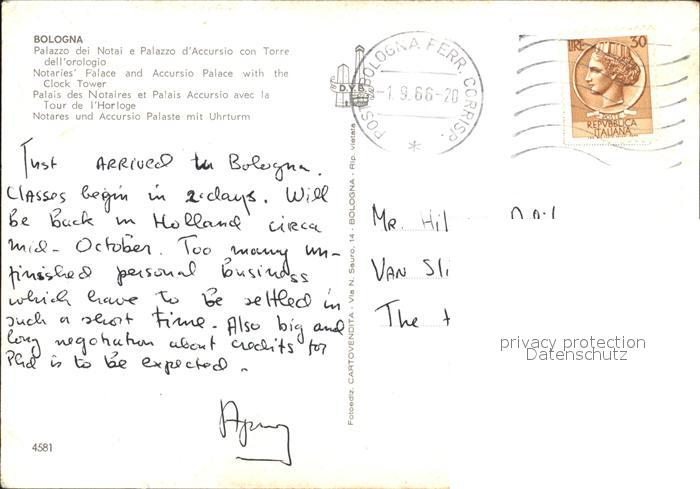 BOLOGNA
Palazzo dei Notai e Palazzo d'Accursio con Torre
dell'orologio
Notaries' Palace and Accursio Palace with the
Clock Tower
Palais des Notaires et Palais Accursio avec la
Tour de l'Horloge
Notares und Accursio Palaste mit Uhrturm
Just ARRIVED in Bologna.
Classes begin in 2 days. Will
be back in Holland circa
mid-October. Too many un-
finished personal business
which have to be settled in
such a short time. Also big and
long negotiation about credits for
Phd is to be expected.
4581
D.V.B.
Fotoediz. CARTOVENDITA - Via N. Sauro, 14 - BOLOGNA - Rip. vietata
BOLOGNA FERR. CORRISP.
-1.9.66-20
LIRE 30
POSTE
REPVBBLICA
ITALIANA
Mr. Hil
Van Sli
The
privacy protection
Datenschutz